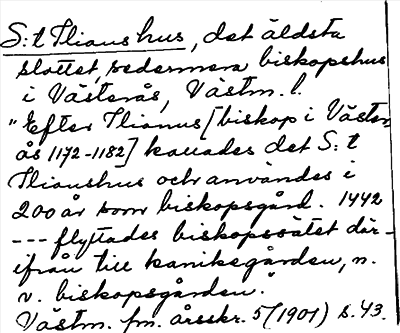 S:t Ilians hus, det äldsta
slottet, sedermera biskopshus
i Västerås, Västm. l.
"Efter Ilianus [biskop i Väster-
ås 1172-1182] kallades det S:t
Ilianshus och användes i
200 år som biskopsgård. 1442
--- flyttades biskopssätet där-
ifrån till kaniksgården, n.
v. biskopsgården."
Västm. fm. årsskr. 5 (1901) s. 43.